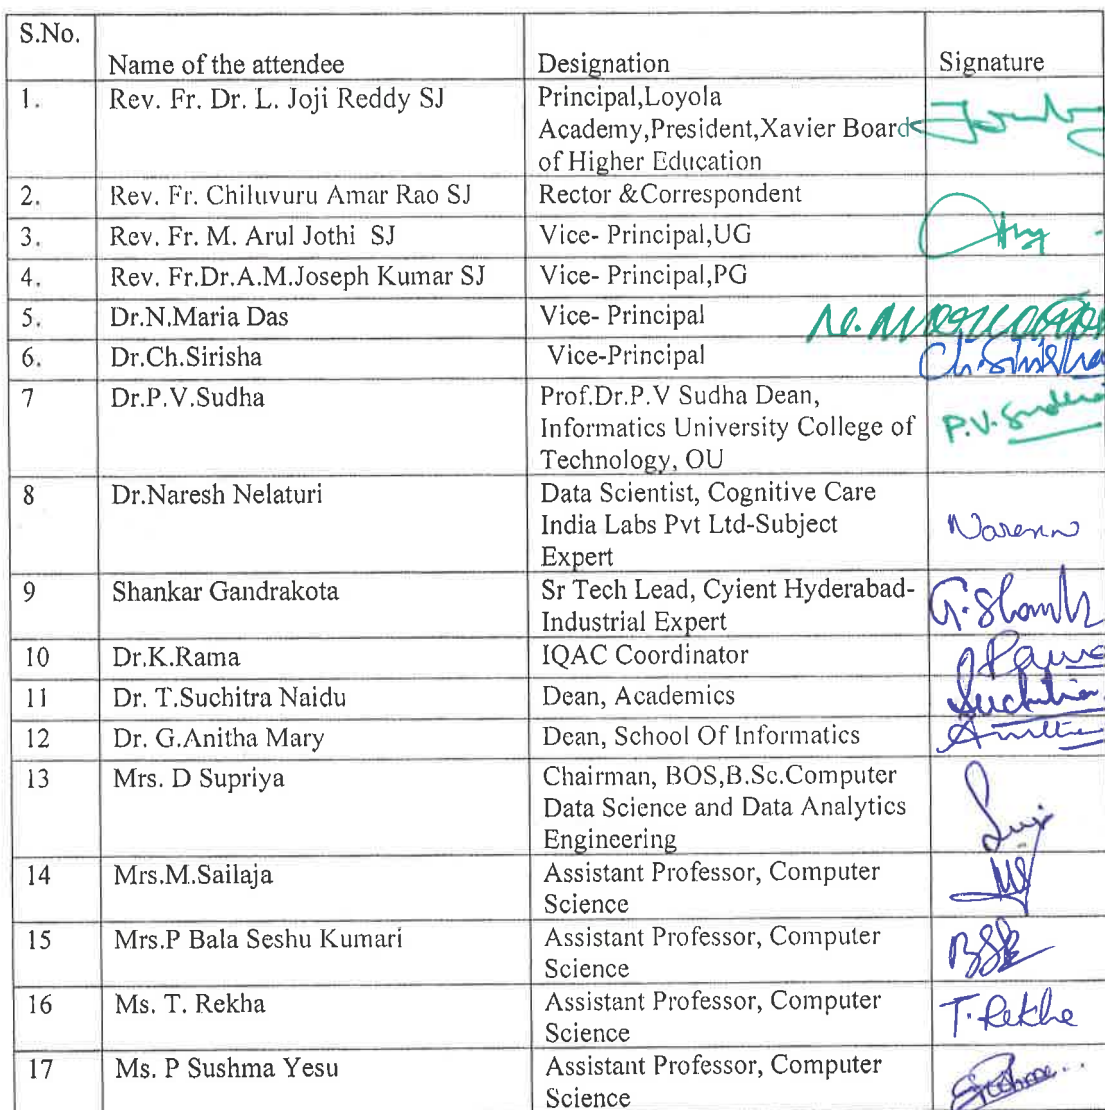 S.No.
Name of the attendee Designation Signature
1. Rev. Fr. Dr. L. Joji Reddy SJ Principal,Loyola
Academy,President,Xavier Board
of Higher Education
2. Rev. Fr. Chiluvuru Amar Rao SJ Rector &Correspondent
3. Rev. Fr. M. Arul Jothi SJ Vice- Principal,UG
4. Rev. Fr.Dr.A.M.Joseph Kumar SJ Vice- Principal,PG
5. Dr.N.Maria Das Vice- Principal
6. Dr.Ch.Sirisha Vice-Principal Ch.Sirisha
7 Dr.P.V.Sudha Prof.Dr.P.V Sudha Dean, P.V.Sudha
Informatics University College of
Technology, OU
8 Dr.Naresh Nelaturi Data Scientist, Cognitive Care
India Labs Pvt Ltd-Subject
Expert
9 Shankar Gandrakota Sr Tech Lead, Cyient Hyderabad-
Industrial Expert
10 Dr.K.Rama IQAC Coordinator
11 Dr. T.Suchitra Naidu Dean, Academics
12 Dr. G.Anitha Mary Dean, School Of Informatics
13 Mrs. D Supriya Chairman, BOS,B.Sc.Computer
Data Science and Data Analytics
Engineering
14 Mrs.M.Sailaja Assistant Professor, Computer
Science
15 Mrs.P Bala Seshu Kumari Assistant Professor, Computer
Science BSK
16 Ms. T. Rekha Assistant Professor, Computer
Science T.Rekha
17 Ms. P Sushma Yesu Assistant Professor, Computer
Science